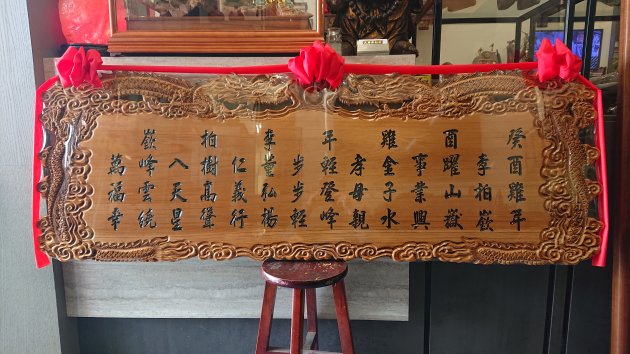 癸酉雞年
李柏嶔
酉躍山嶽
事業興
雞金子水
孝母親
年輕登峰
步步輕
李董弘揚
仁義行
柏樹高聳
入天星
嶔峰雲統
萬福幸